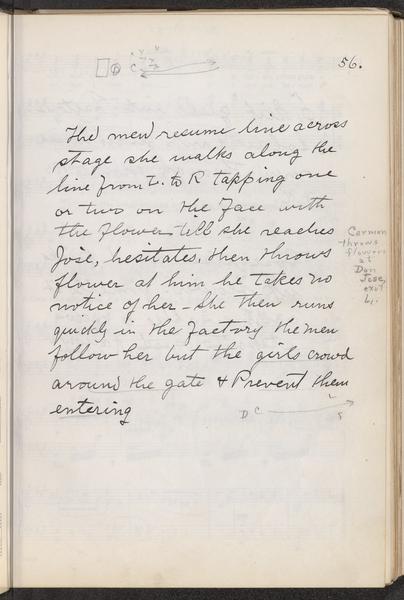 56.
The men resume line across
stage she walks along the
line from L. to R tapping one
or two on the face with
the flower till she reaches
José, hesitates, then throws
flower at him he takes no
notice of her - She then runs
quickly in the factory the men
follow her but the girls crowd
around the gate & Prevent them
entering
Carmen
throws
flowers
at
Don
Jose,
exit
L.
D C